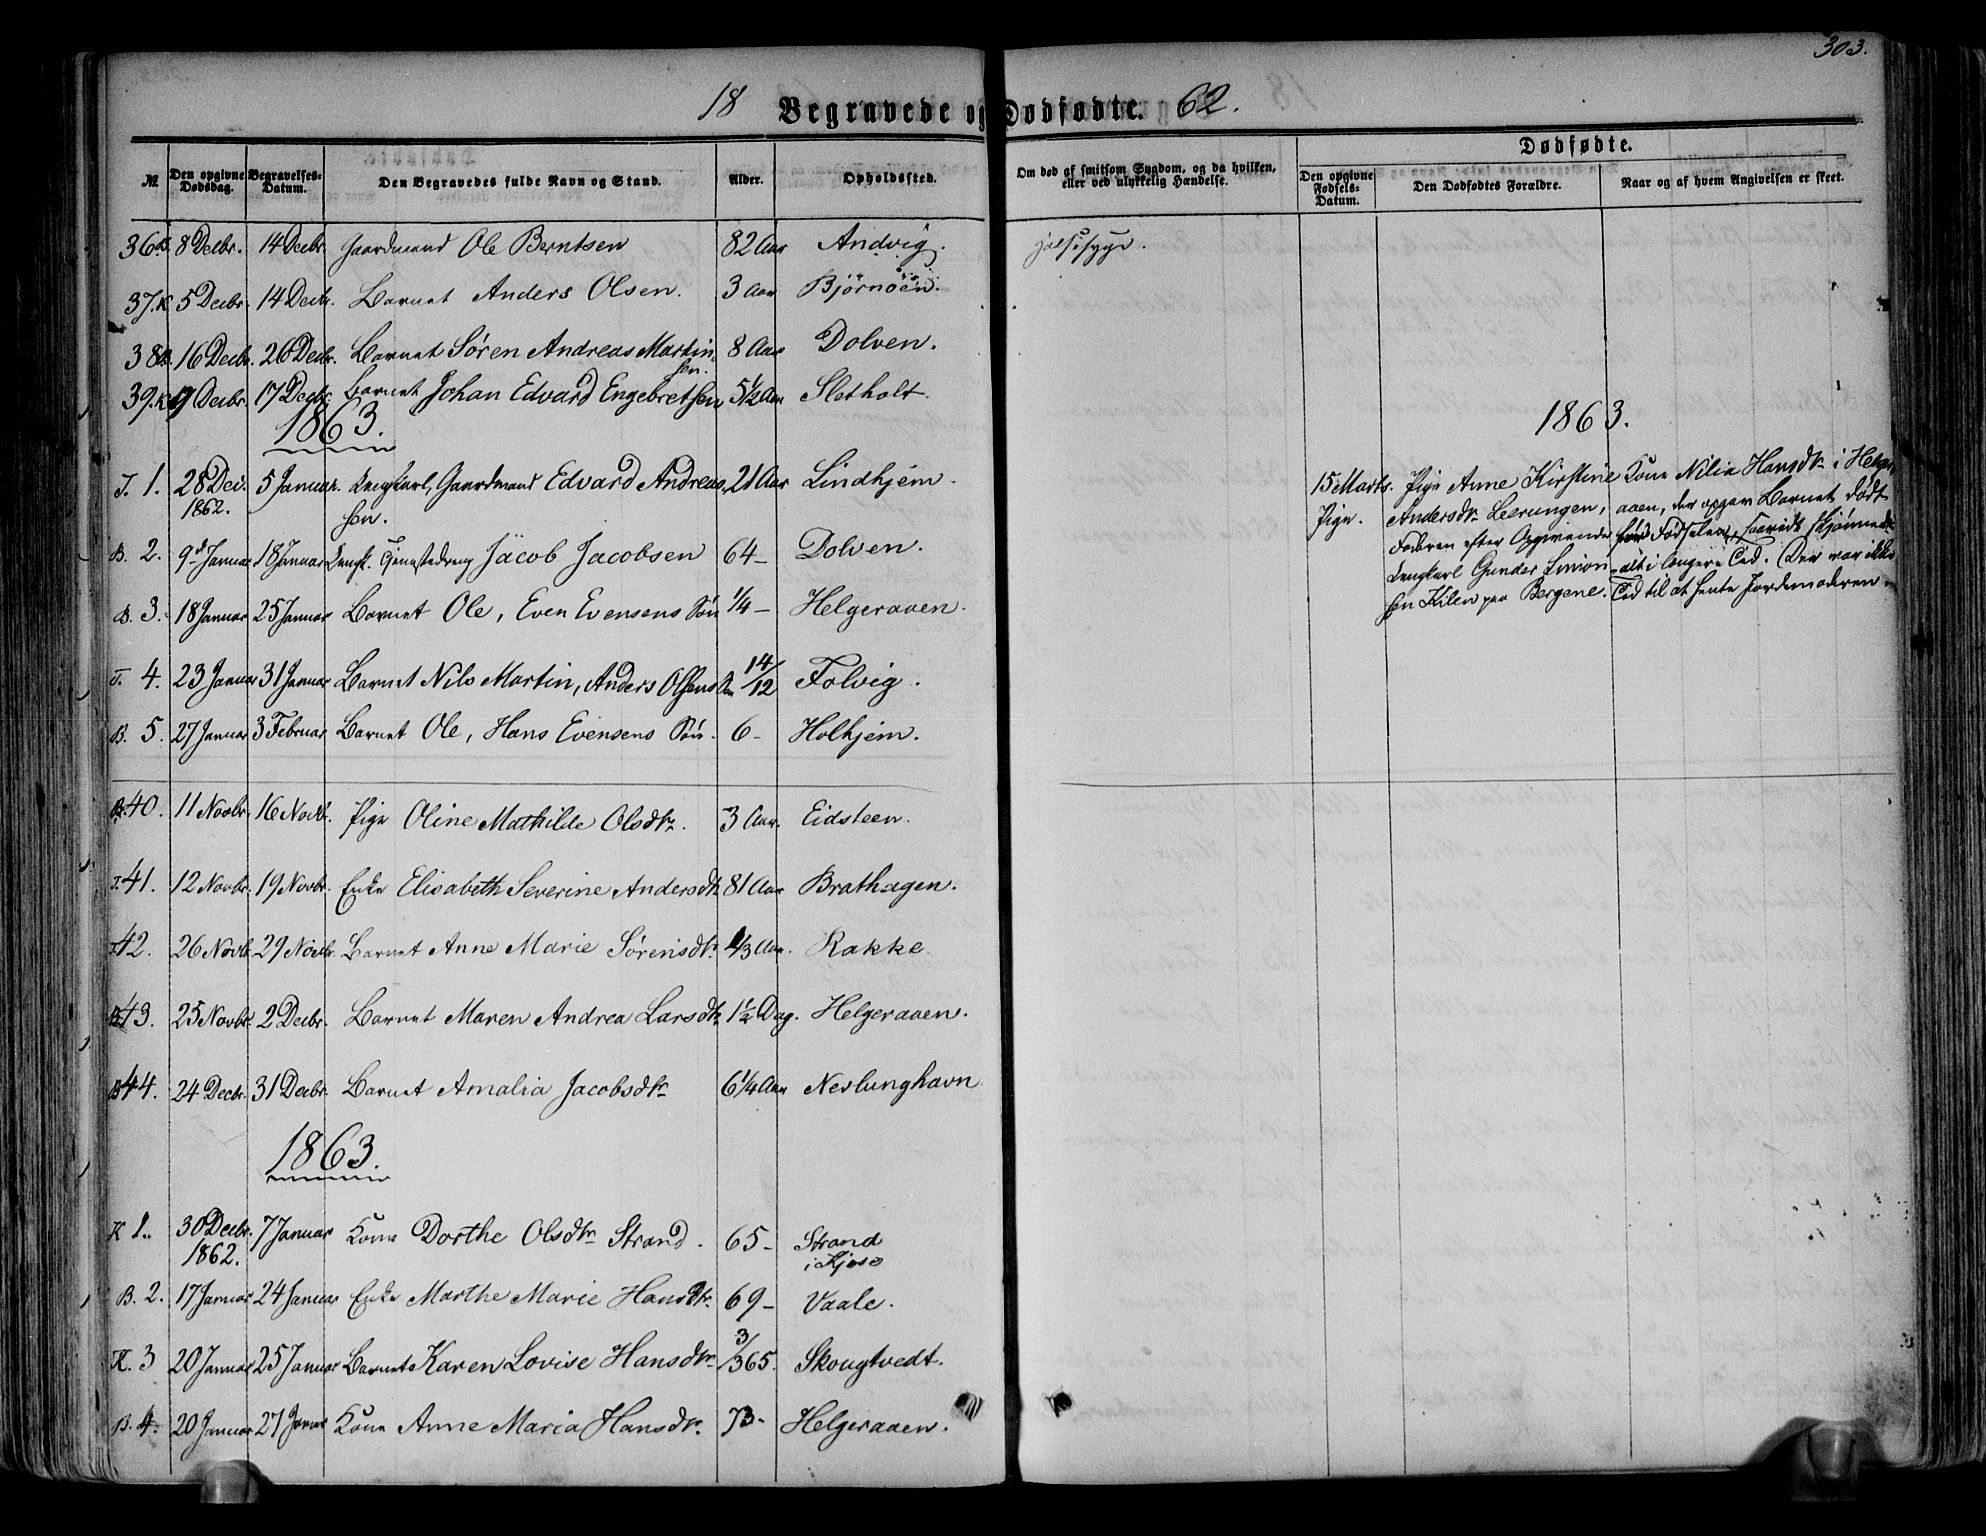 303.
18 Begravede og Dødfødte. 62.
№ Den opgivne Dødsdag. Begravelses-Datum. Den Begravedes fulde Navn og Stand. Alder. Opholdssted. Om død af smitsom Sygdom, og da hvilken, eller ved ulykkelig Hændelse. Dødfødte.
Den opgivne Fødsels-Datum. Den Dødfødtes Forældre. Naar og af hvem Angivelsen er skeet.
36. B. 8 Decbr. 14 Decbr. Gaardmand Ole Berntsen 82 Aar Andvig.
37. K 5 Decbr. 14 Decbr. Barnet Anders Olsen. 3 Aar Bjørnøen.
38. B. 16 Decbr. 26 Decbr. Barnet Søren Andreas Martin 8 Aar Dolven.
sen.
39. K 9 Decbr. 17 Decbr. Barnet Johan Edvard Engebretsen 5 1/2 Aar Sletholt.
1863. 1863.
T. 1. 28 Dec. 5 Januar. Ungkarl, Gaardmand Edvard Andreas 21 Aar Lindhjem.
1862. sen.
B. 2. 9d Januar 18 Januar Ungk. Tjenestedreng Jacob Jacobsen 64 - Dolven.
B. 3. 18 Januar 25 Januar Barnet Ole, Even Evensens Søn 1/4 - Helgeraaen.
T. 4. 23 Januar 31 Januar Barnet Nils Martin, Anders Olsens Søn 14/12 Folvig.
B. 5. 27 Januar 3 Februar Barnet Ole, Hans Evensens Søn. 6 - Holhjem.
15 Marts. Pige Anne Kirstine
Pige. Andersdtr Leerungen,
Faderen efter Opgivende
Ungkarl Gunder Simon
sen Kilen paa Bergene.
Kone Nilia Hansdtr i Helger
aaen, der opgav Barnet dødt
før Fødselen, saavidt skjønnedes
alt i længere Tid. Der var ikke
Tid til at hente Jordemoderen.
B. 40. 11 Novbr. 16 Novbr. Pige Oline Mathilde Olsdtr. 3 Aar. Eidsteen.
T. 41. 12 Novbr. 19 Novbr. Enke Elisabeth Severine Andersdtr 81 Aar Brathagen.
T. 42. 26 Novbr. 29 Novbr. Barnet Anne Marie Sørensdtr. 1/3 Aar. Rakke.
B. 43. 25 Novbr. 2 Decbr. Barnet Maren Andrea Larsdtr 1 1/2 Dag. Helgeraaen.
B. 44. 24 Decbr. 31 Decbr. Barnet Amalia Jacobsdtr 6 1/4 Aar Nevlunghavn
1863.
K 1. 30 Decbr. 7 Januar Kone Dorthe Olsdtr Strand. 65 - Strand
1862. i Kjose
B. 2. 17 Januar 24 Januar Enke Marthe Marie Hansdtr. 69 - Vaale.
K. 3 20 Januar 25 Januar Barnet Karen Lovise Hansdtr. 3/365. Skougtvedt.
B. 4. 20 Januar 27 Januar Kone Anne Maria Hansdtr. 73 - Helgeraaen.